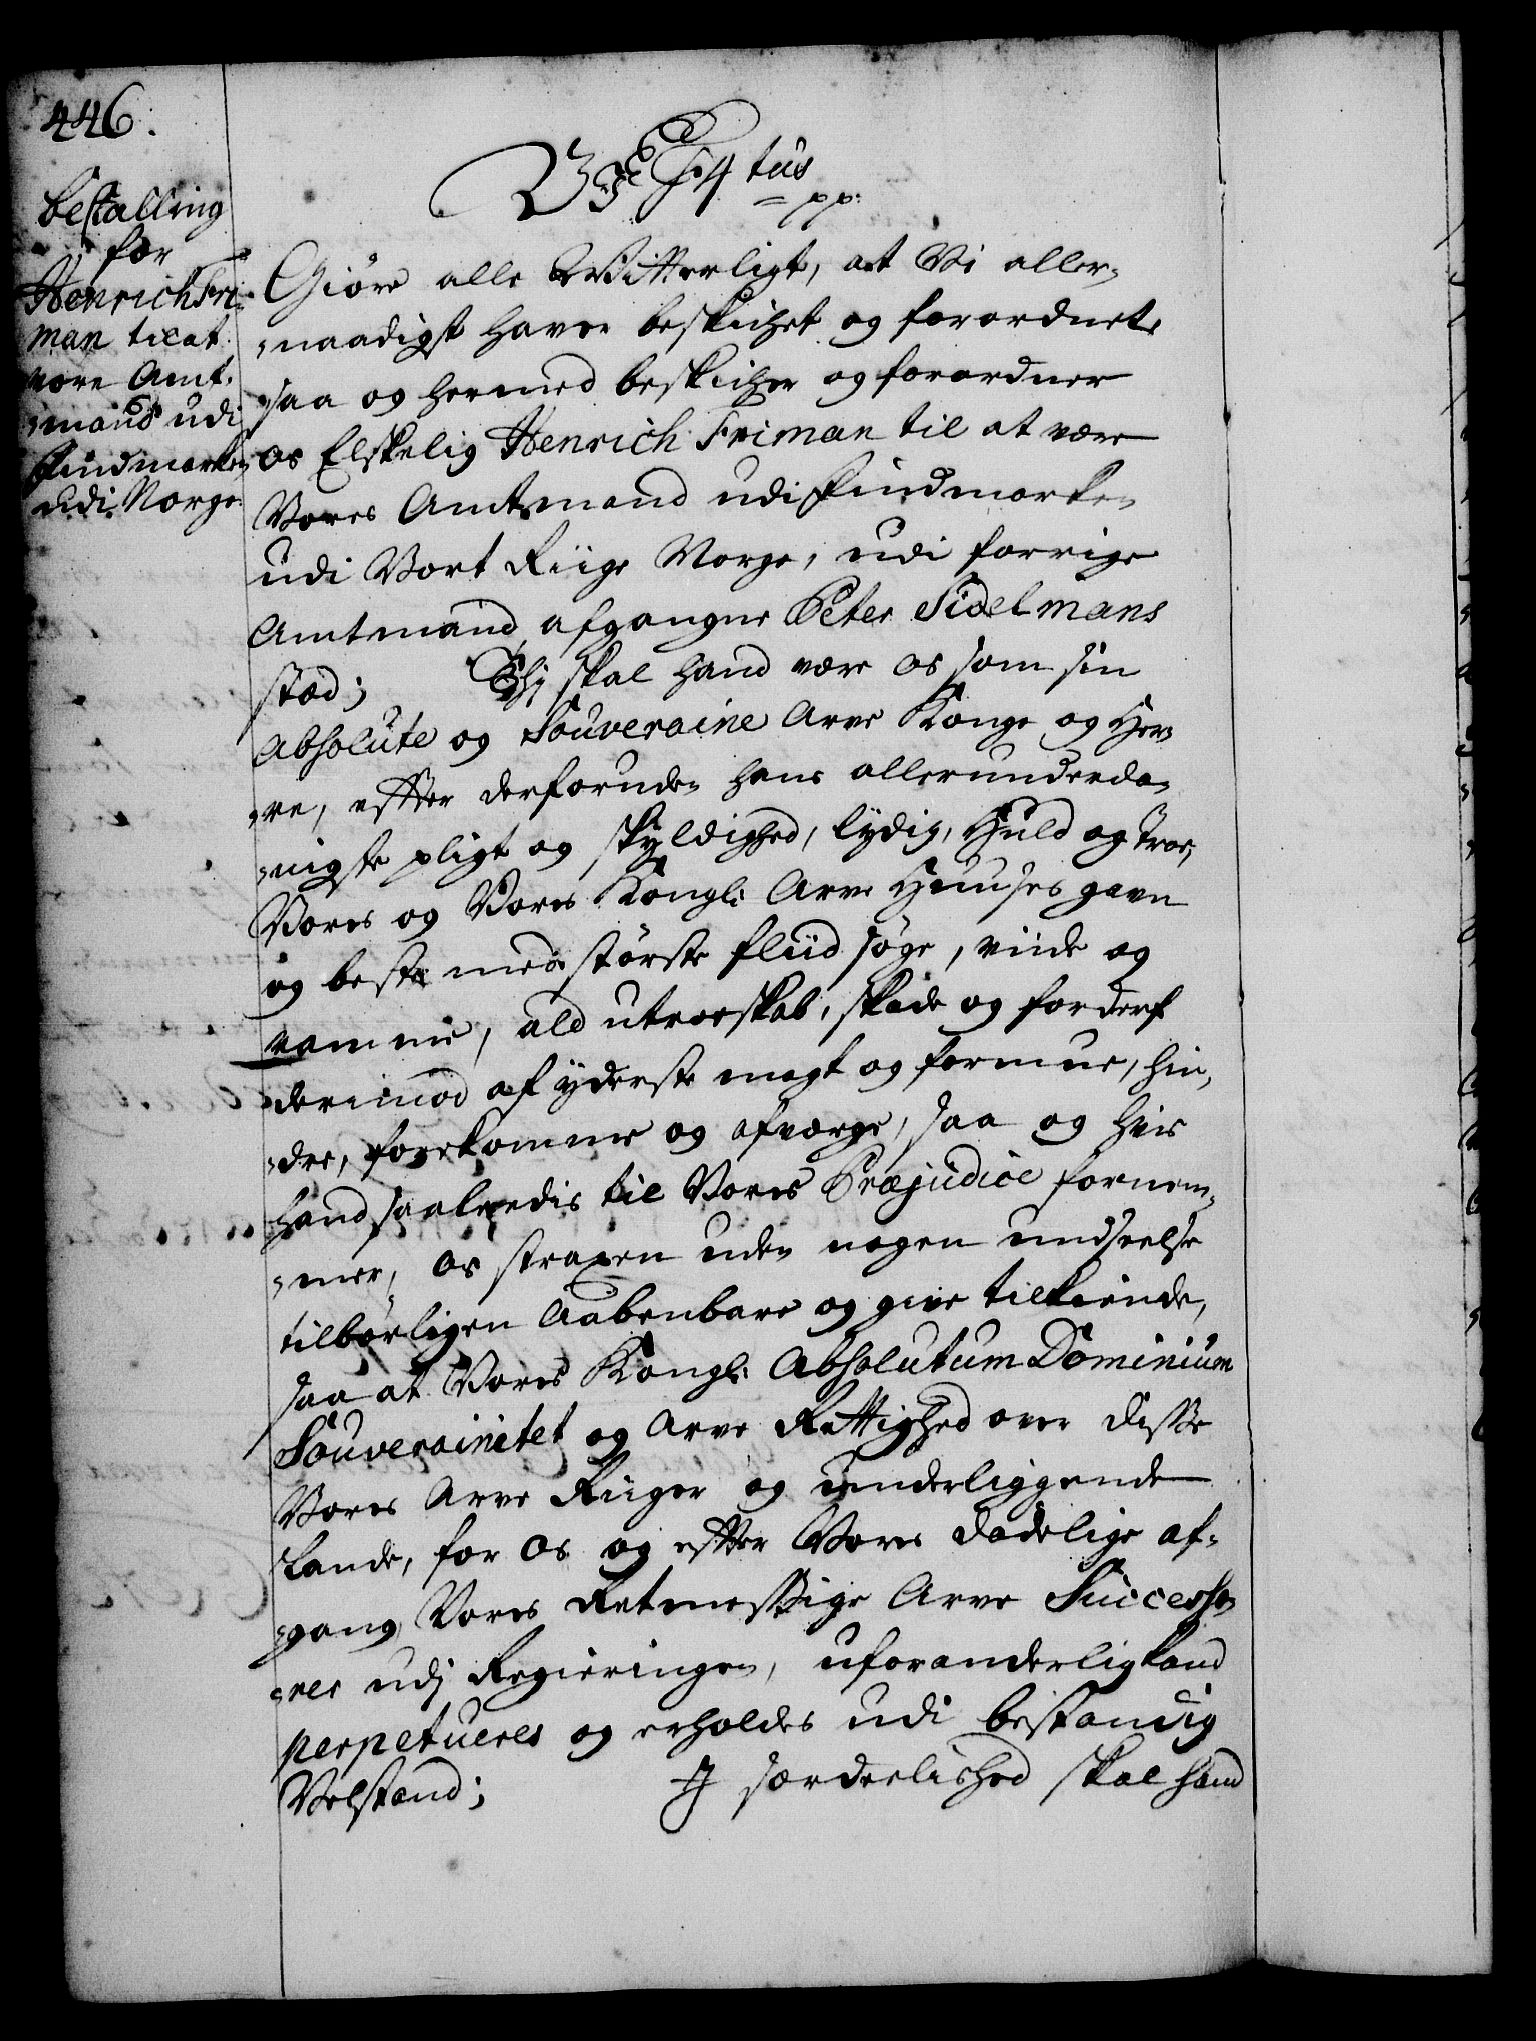 446.
Bestalling
for
Henrich Fri-
man til at
være Amt-
mand udi
Findmarken
udi Norge.
V F F 4 tus
pp.
Giöre alle Vitterligt, at Vi aller-
naadigst haver beskichet og forordnet,
saa og hermed beskicher og forordner
os Elskelig Henrich Friman til at være
Vores Amtmand udi Findmarken
udi Vort Riige Norge, udi forrige
Amtmand afgangne Peter Sidelmans
stæd; Thj skal hand være os som sin
Absolute og Souveraine Arve Konge og Her-
re, effter derforuden hans allerunderda-
nigste pligt og skyldighed, lydig, Huld og Troe,
Vores og Vores Kongl. Arve Huuses gavn
og beste med störste fliid søge, viide og
ramme, ald utroeskab, skade og forderf
derimod af yderste magt og formue, hin-
dre, forekomme og afværge, saa og hvis
hand saaledis til Vores Præjudice fornem-
mer, os straxen uden nogen undseelse
tilbørligen Aabenbare og give tilkiende,
saa at Vores Kongl. Absolutum Dominium
Souverainitet og Arve Rettighed over disse
Vores Arve Riiger og underliggende
Lande, for os og effter Vores dødelige af-
gang Vores Retmessige Arve Successo-
rer udj Regieringen, uforanderlig kand
perpetueres og erholdes udi bestandig
Velstand; J særdeelished skal hand